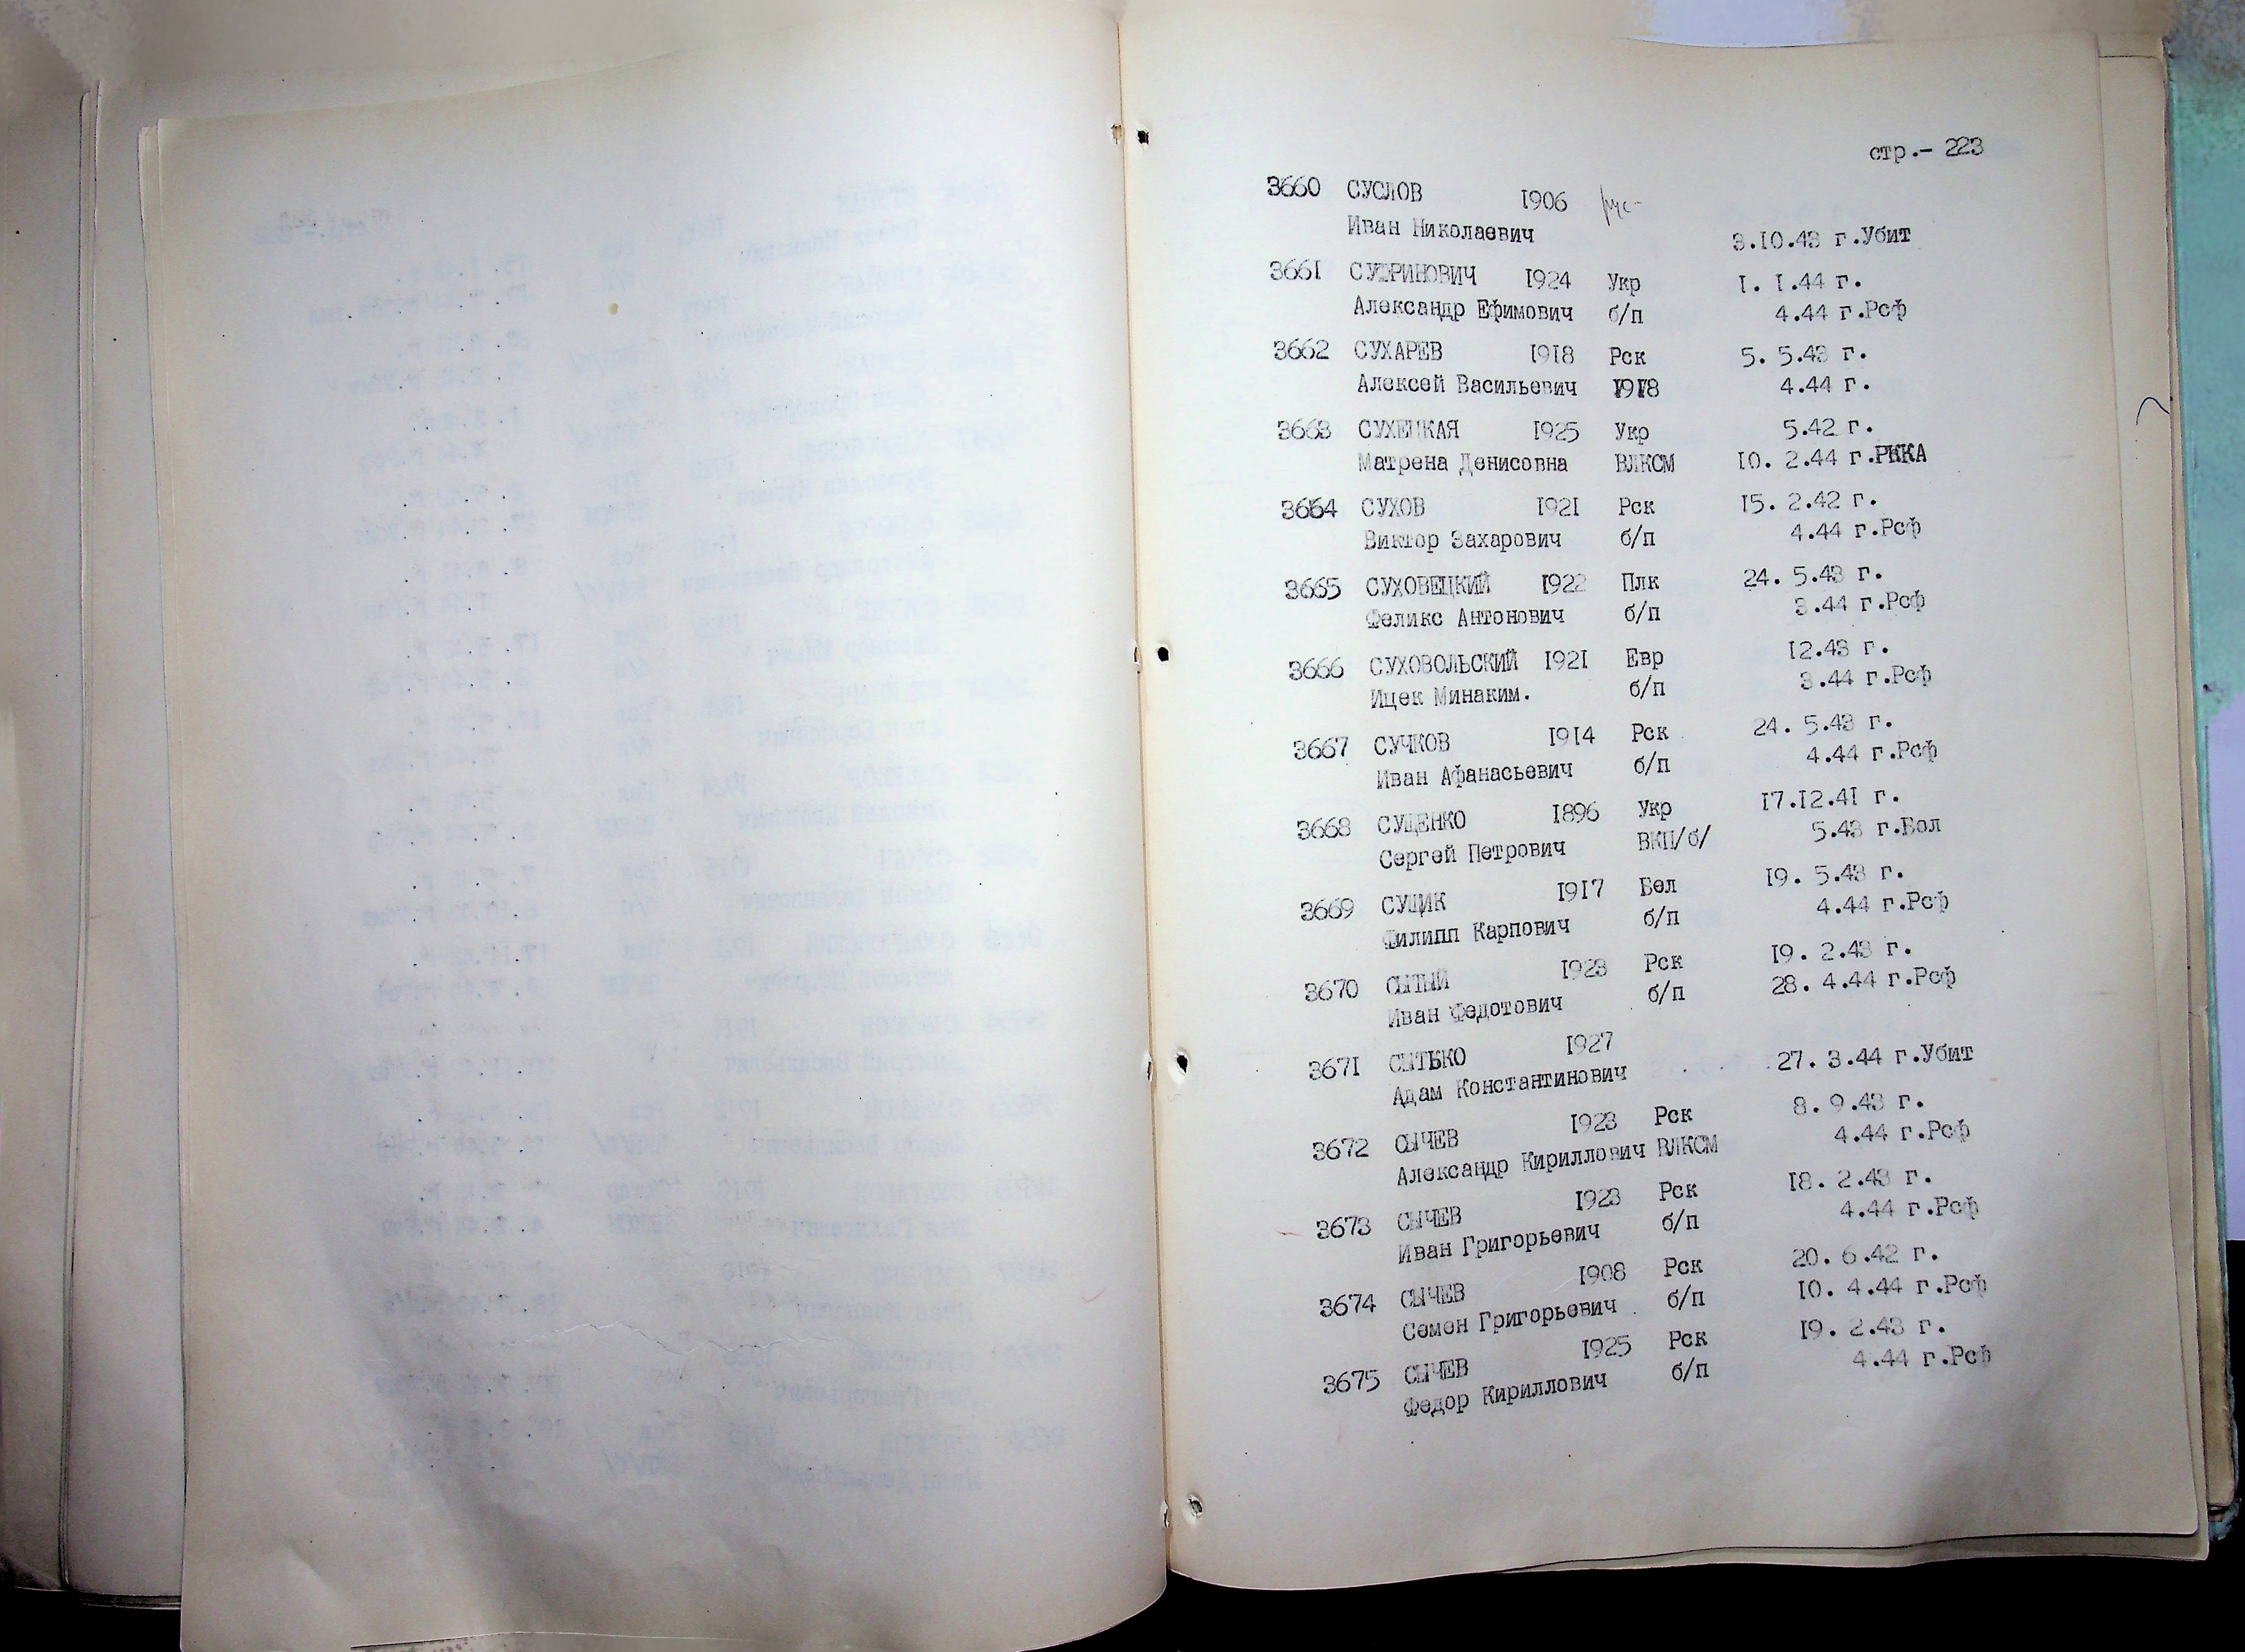 стр.- 223
3660 СУСЛОВ 1906 рус-
Иван Николаевич 3.10.43 г.Убит
3661 1924 Укр 1. 1.44 г.
Александр Ефимович б/п 4.44 г.Рсф
3662 СУХАРЕВ 1918 Рск 5. 5.43 г.
Алексей Васильевич 1918 4.44 г.
3663 СУХЕЦКАЯ 1925 Укр 5.42 г.
Матрена Денисовна ВЛКСМ 10. 2.44 г.РККА
3664 СУХОВ 1921 Рск 15. 2.42 г.
Виктор Захарович б/п 4.44 г.Рсф
3665 СУХОВЕЦКИЙ 1922 Плк 24. 5.43 г.
Феликс Антонович б/п 3.44 г.Рсф
3666 СУХОВОЛЬСКИЙ 1921 Евр 12.43 г.
Ицек Минаким. б/п 3.44 г.Рсф
3667 СУЧКОВ 1914 Рск 24. 5.43 г.
Иван Афанасьевич б/п 4.44 г.Рсф
3668 СУЩЕНКО 1896 Укр 17.12.41 г.
Сергей Петрович ВКП/б/ 5.43 г.Бол
3669 СУЩИК 1917 Бел 19. 5.43 г.
Филипп Карпович б/п 4.44 г.Рсф
3670 СЫТЫЙ 1923 Рск 19. 2.43 г.
Иван Федотович б/п 28. 4.44 г.Рсф
3671 СЫТЬКО 1927
Адам Константинович 27. 3.44 г.Убит
3672 СЫЧЕВ 1923 Рск 8. 9.43 г.
Александр Кириллович ВЛКСМ 4.44 г.Рсф
3673 СЫЧЕВ 1923 Рск 18. 2.43 г.
Иван Григорьевич б/п 4.44 г.Рсф
3674 СЫЧЕВ 1908 Рск 20. 6.42 г.
Семен Григорьевич б/п 10. 4.44 г.Рсф
3675 СЫЧЕВ 1925 Рск 19. 2.43 г.
Федор Кириллович б/п 4.44 г.Рсф